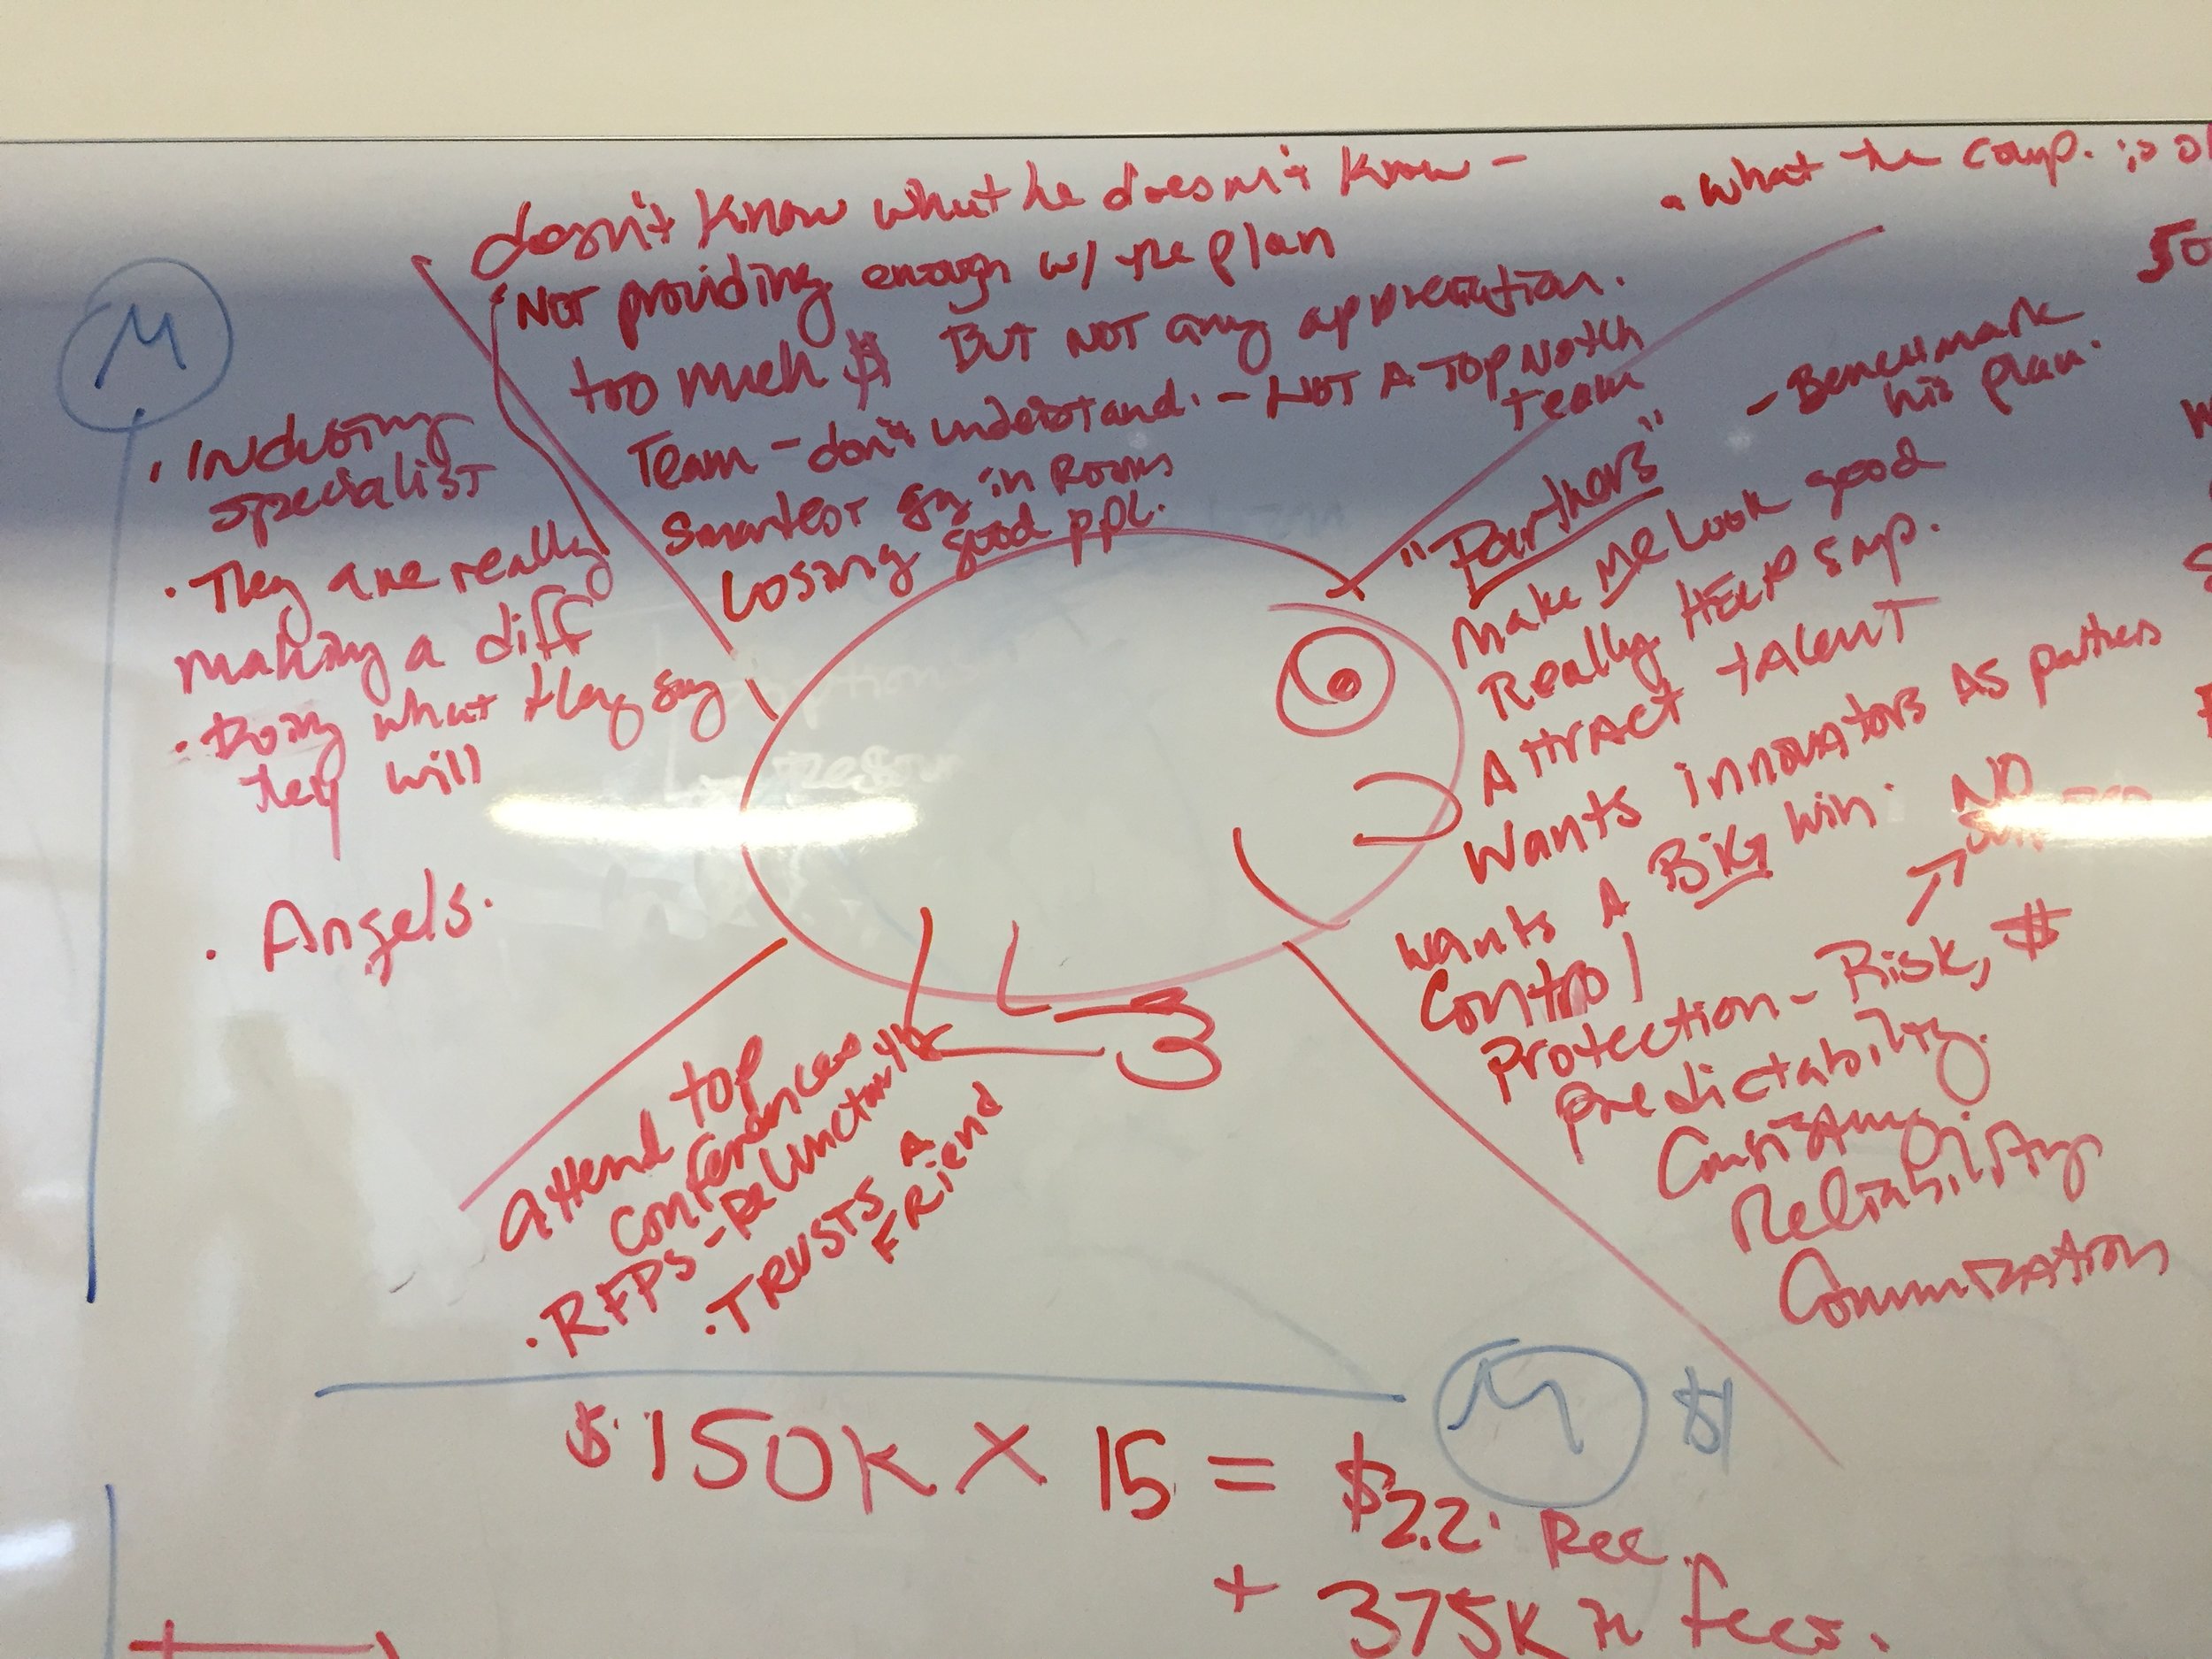 doesn't know what he doesn't know -
NOT providing enough w/ the plan
too much $ BUT NOT any appreciation.
Team - don't understand. - NOT A TOP NOTCH
team
Smartest guy in Rooms
Losing good ppl.
• What the comp. is
50
- Benchmark
his plan.
M
• Industry
specialist
• They are really
making a diff
• Doing what they say
they will
• Angels.
"Partners"
Make Me Look good
Really HELP Emp.
Attract talent
Wants innovators As partners
Wants A BIG Win.
NO
Control
Protection - Risk, $
Predictability.
Reliability
attend top
conferences
• RFPS -
• TRUSTS A
FRiend
M $
$150K X 15 = $2.2 Rec.
+ 375K in fees.